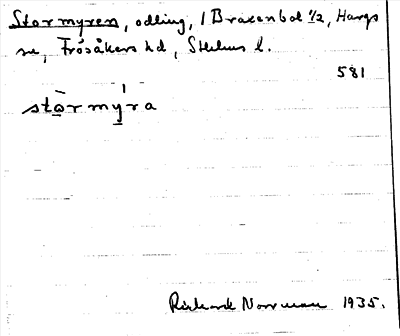 Stormyren, odling, i Braxenbol 1/2, Hargs
sn, Frösåkers hd, Sthlms l.
581
stòrmý̱ra
Richard Norrman 1935.